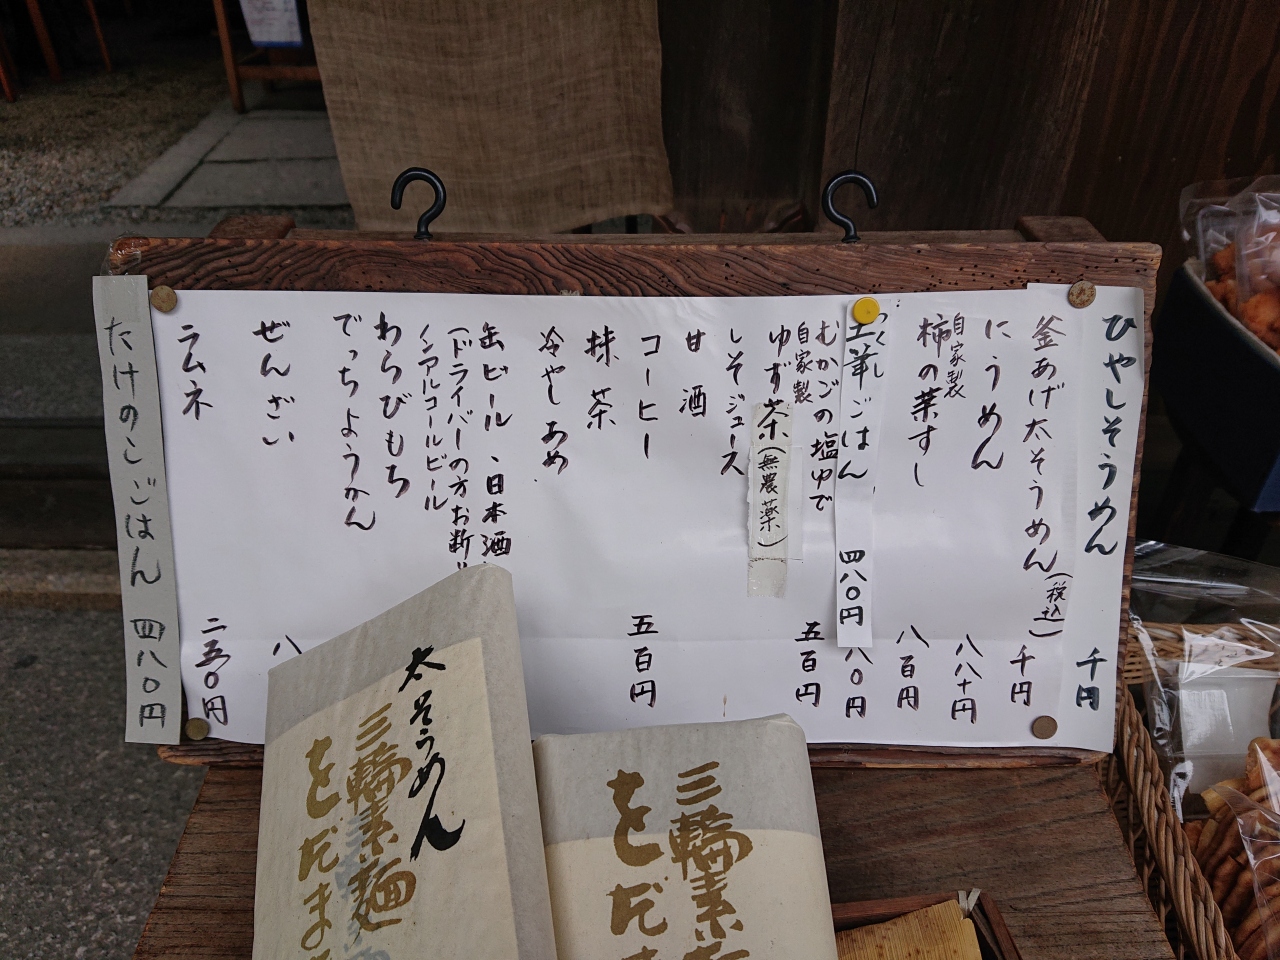 ひやしそうめん 千円
釜あげ太そうめん(税込) 千円
にうめん 八八十円
自家製
柿の葉すし 八百円
つくし
土筆ごはん 四八〇円
むかごの塩ゆで 八〇円
自家製
ゆず茶(無農薬) 五百円
しそジュース
甘酒
コーヒー 五百円
抹茶
冷やしあめ
缶ビール、日本酒
(ドライバーの方お断り
ノンアルコールビール
わらびもち
でっちようかん
ぜんざい 八
ラムネ 二五〇円
たけのこごはん 四八〇円
太そうめん
三輪素麺
をだま
三輪素
をだ